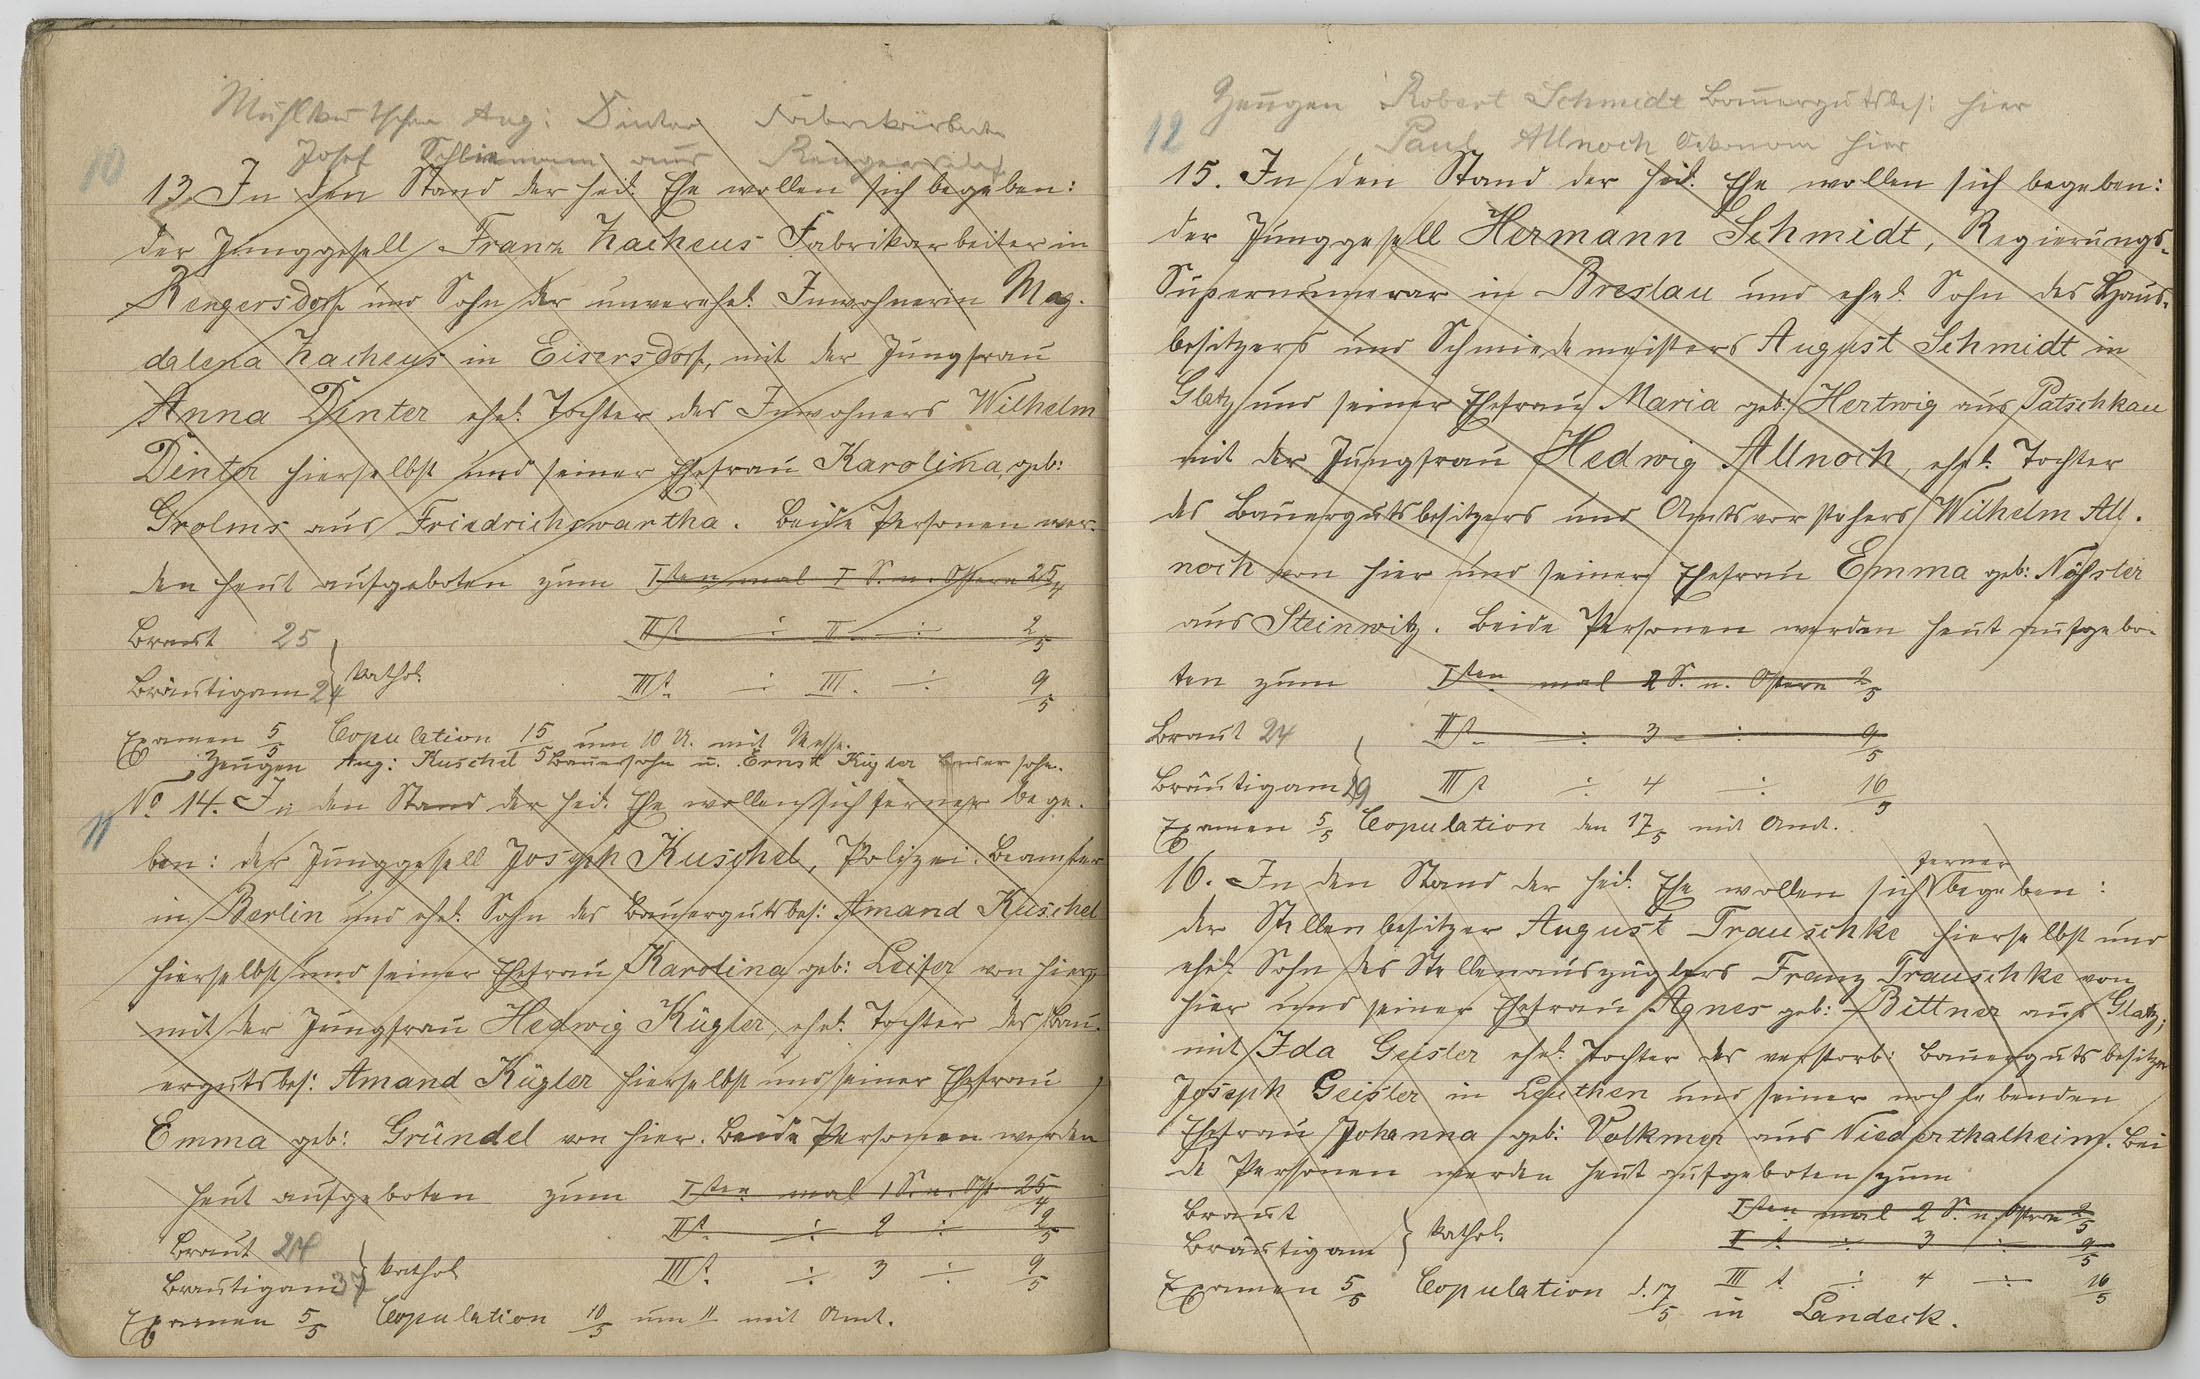 Aug: Dinter Fabrikarbeiter
Josef Schliemann aus Rengersdorf
10
13. In den Stand der heil. Ehe wollen sich begeben:
der Junggesell Franz Zacheus Fabrikarbeiter in
Rengersdorf und Sohn der unverehel. Inwohnerin Mag-
dalena Zacheus in Eisersdorf, mit der Jungfrau
Anna Dinter ehel. Tochter des Inwohners Wilhelm
Dinter hierselbst und seiner Ehefrau Karolina, geb:
Grolms aus Friedrichswartha. Beide Personen wer-
den heut aufgeboten zum Iten mal I S. n. Ostern 25/4
Braut 25 IIt ÷ II ÷ 2/5
Bräutigam 24 kathol. IIIt. ÷ III. ÷ 9/5
Examen 5/5 Copulation 15/5 um 10 U. mit Messe.
Zeugen Aug: Kuschel Bauersohn u. Ernst Kügler Bauersohn.
11
No 14. In den Stand der heil. Ehe wollen sich ferner bege-
ben: der Junggesell Joseph Kuschel, Polizei-Beamter
in Berlin und ehel. Sohn des Bauergutsbes: Amand Kuschel
hierselbst und seiner Ehefrau Karolina geb: Leifer von hier,
mit der Jungfrau Hedwig Kügler, ehel. Tochter des Bau-
ergutsbes: Amand Kügler hierselbst und seiner Ehefrau
Emma geb: Gründel von hier. Beide Personen werden
heut aufgeboten zum Iten mal 1 S. n. Ost 25/4
IIt ÷ 2 ÷ 2/5
Braut 24
Bräutigam 37 kathol IIIt. ÷ 3 ÷ 9/5
Examen 5/5 Copulation 10/5 um 11 mit Amt.
Zeugen Robert Schmidt Bauergutsbes: hier
12
Paul Allnoch Oekonom hier
15. In den Stand der heil. Ehe wollen sich begeben:
der Junggesell Hermann Schmidt, Regierungs-
Supernumerar in Breslau und ehel. Sohn des Haus-
besitzers und Schmiedemeisters August Schmidt in
Glatz und seiner Ehefrau Maria geb: Hertwig aus Patschkau
mit der Jungfrau Hedwig Allnoch, ehel. Tochter
des Bauergutsbesitzers und Amtsvorstehers Wilhelm All-
noch von hier und seiner Ehefrau Emma geb:
aus Steinwitz. Beide Personen werden heut aufgebo-
ten zum Iten mal 2 S. n. Ostern 2/5
Braut 24 IIt. ÷ 3 ÷ 9/5
Bräutigam 29 IIIt ÷ 4 ÷ 16/5
Examen 5/5 Copulation den 17/5 mit Amt.
ferner
16. In den Stand der heil. Ehe wollen sich begeben:
der Stellenbesitzer August Trauschke hierselbst und
ehel. Sohn des Stellenauszüglers Franz Trauschke von
hier und seiner Ehefrau Agnes geb: Bittner aus Glatz;
mit Ida Geisler ehel. Tochter des verstorb: Bauergutsbesitzer
Joseph Geisler in Leuthen und seiner noch lebenden
Ehefrau Johanna geb: Volkmer aus Niederthalheim. Bei
de Personen werden heut aufgeboten zum
Braut Iten mal 2 S. n. Ostern 2/5
Bräutigam kathol. II t. ÷ 3 ÷ 9/5
Examen 5/5 Copulation d. 17/5 III t ÷ 4 ÷ 16/5
in Landeck.